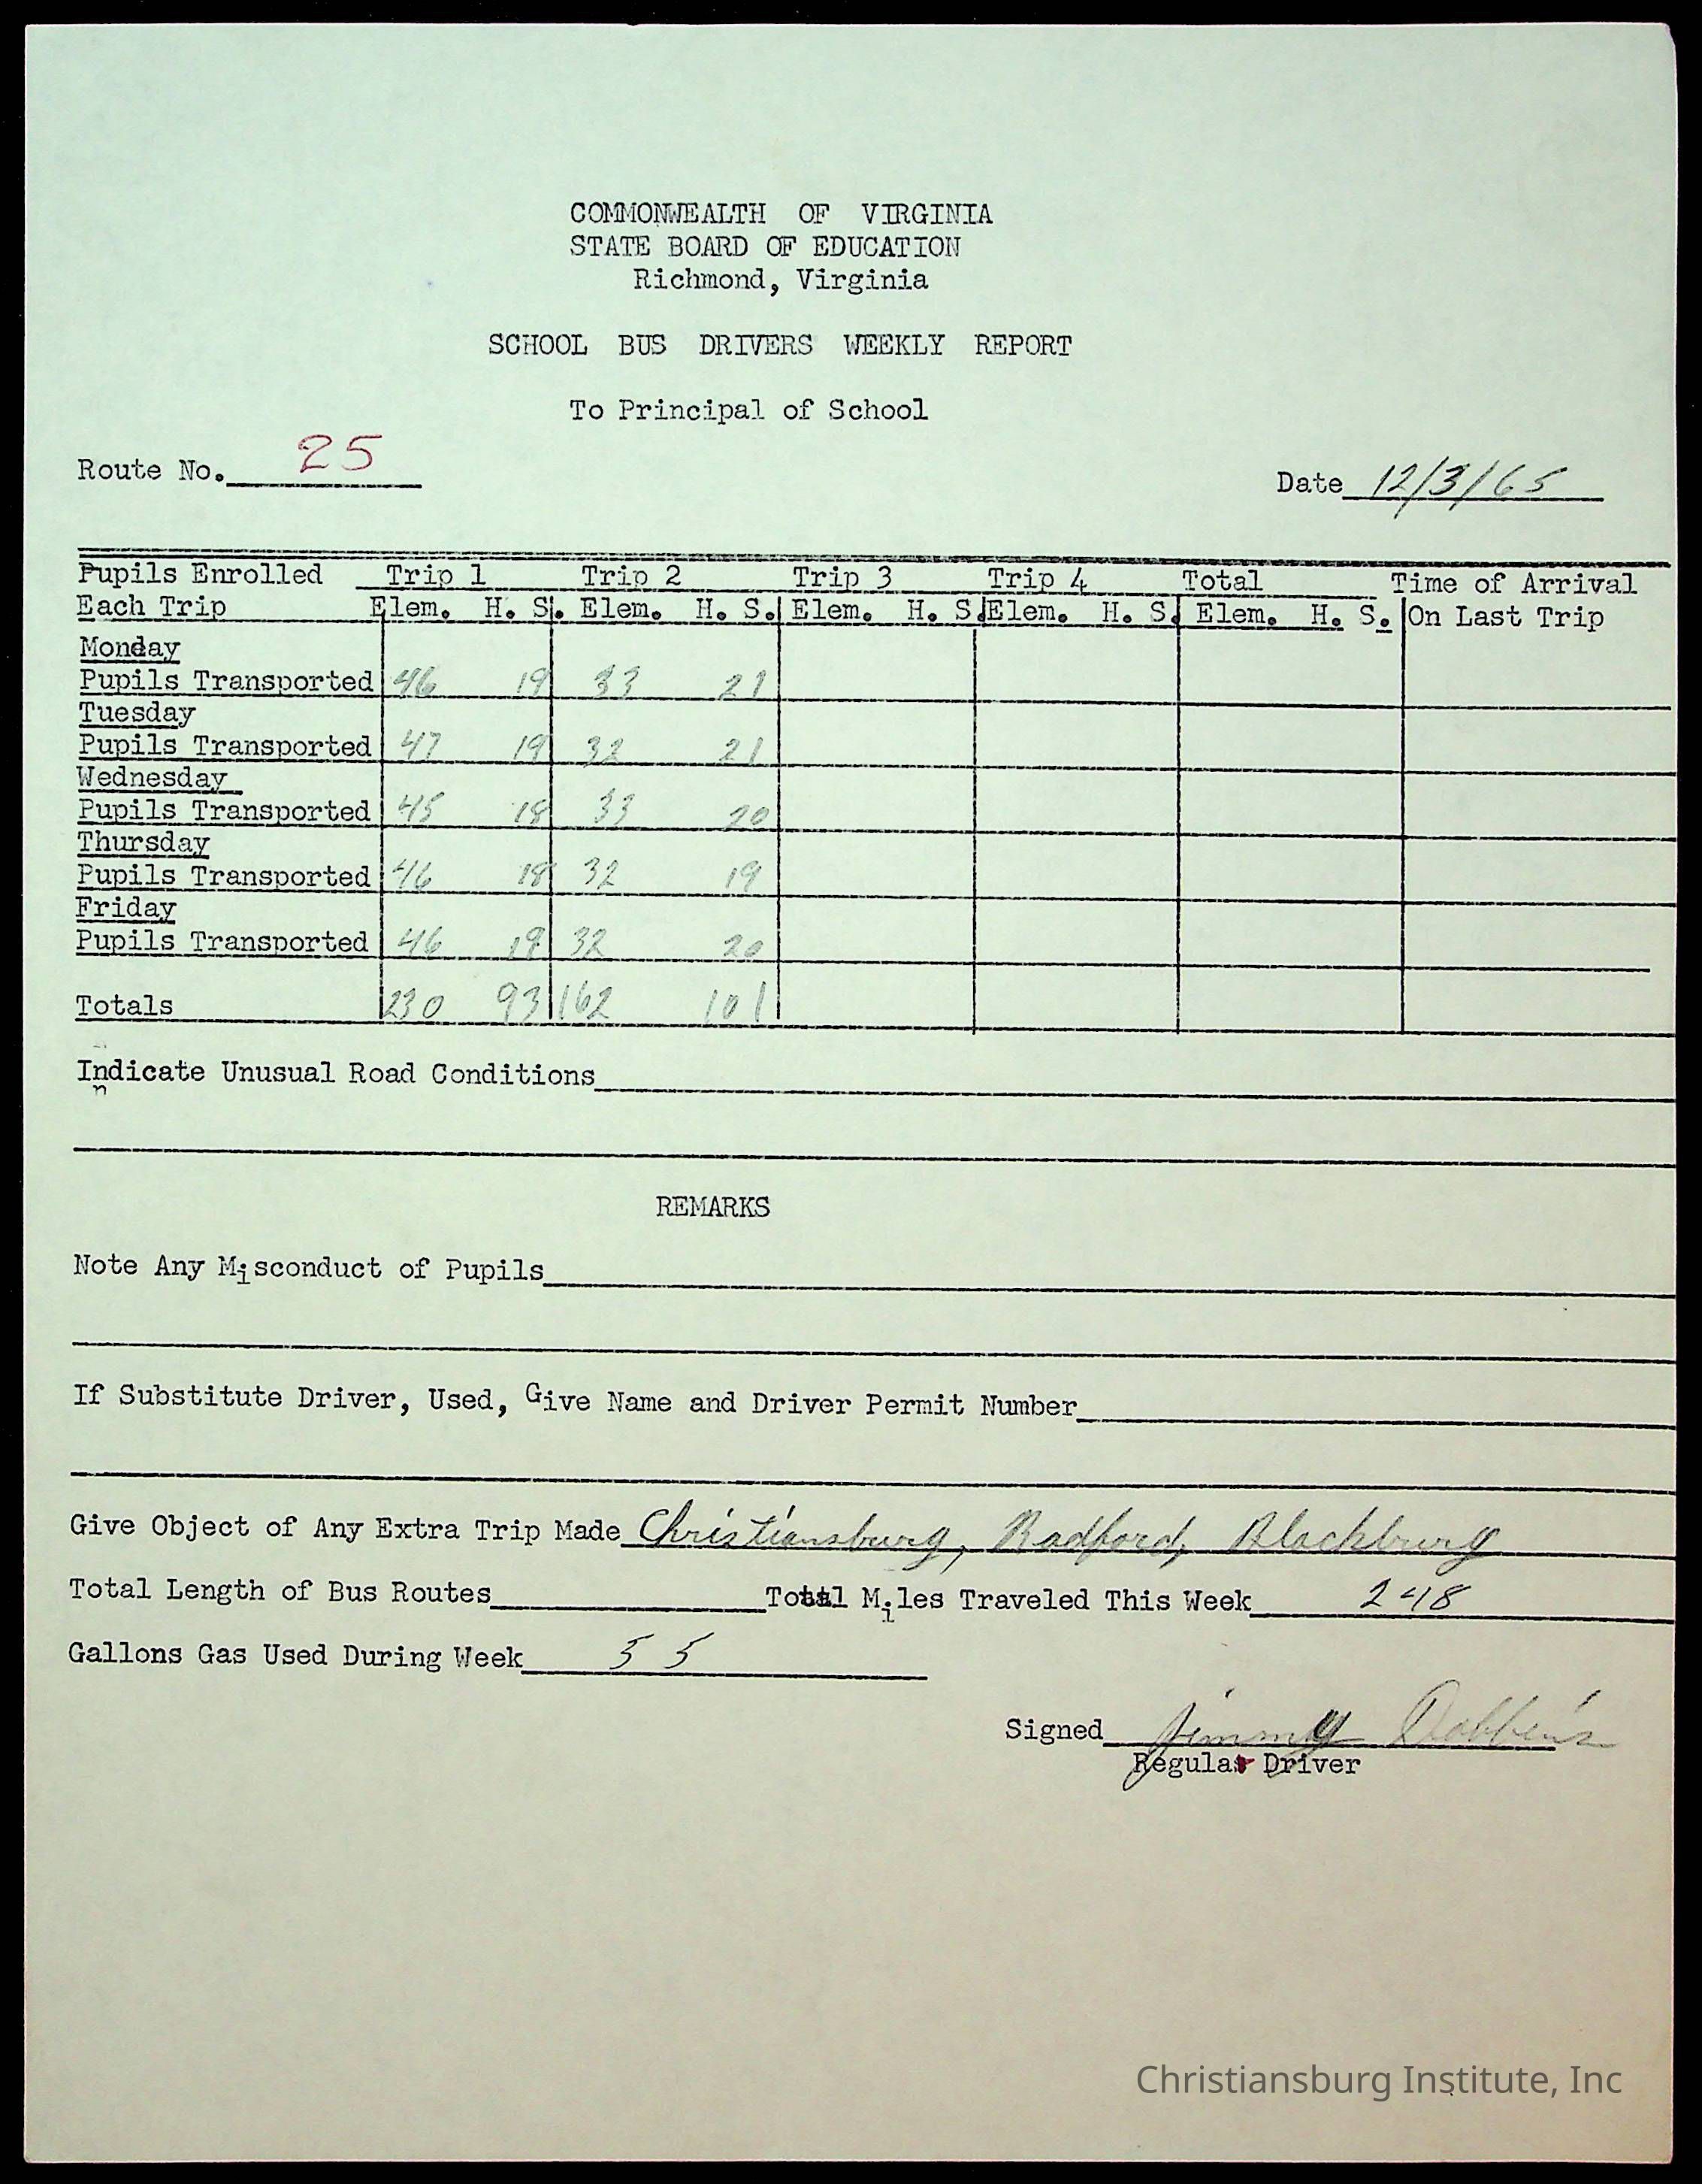 COMMONWEALTH OF VIRGINIA
STATE BOARD OF EDUCATION
Richmond, Virginia
SCHOOL BUS DRIVERS WEEKLY REPORT
To Principal of School
Route No. 25
Date 12/3/65
Pupils Enrolled Trip 1 Trip 2 Trip 3 Trip 4 Total Time of Arrival
Each Trip Elem. H. S. Elem. H. S. Elem. H. S. Elem. H. S. Elem. H. S. On Last Trip
Monday
Pupils Transported 46 19 33 21
Tuesday
Pupils Transported 47 19 32 21
Wednesday
Pupils Transported 45 18 33 20
Thursday
Pupils Transported 46 18 32 19
Friday
Pupils Transported 46 19 32 20
Totals 230 93 162 101
Indicate Unusual Road Conditions
REMARKS
Note Any Misconduct of Pupils
If Substitute Driver, Used, Give Name and Driver Permit Number
Give Object of Any Extra Trip Made Christiansburg, Radford, Blackburg
Total Length of Bus Routes Total Miles Traveled This Week 248
Gallons Gas Used During Week 55
Signed Jimmy Dobbins
Regular Driver
Christiansburg Institute, Inc